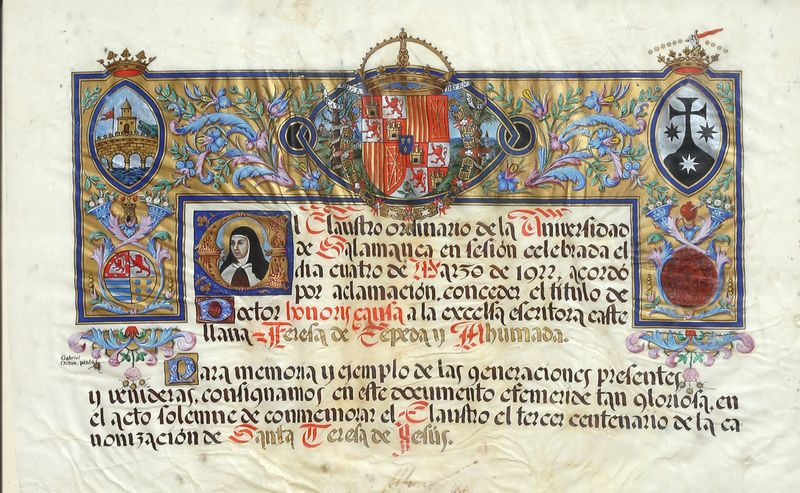 El Claustro ordinario de la Universidad
de Salamanca en sesión celebrada el
dia cuatro de Marzo de 1922, acordó
por aclamación, conceder el titulo de
Doctor honoris causa a la excelsa escritora caste
llana Teresa de Cepeda y Ahumada.
Gabriel
Ochoa, pintó
Para memoria y ejemplo de las generaciones presentes
y venideras, consignamos en este documento efemeride tan gloriosa, en
el acto solemne de conmemorar el Claustro el tercer centenario de la ca
nonización de Santa Teresa de Jesús.